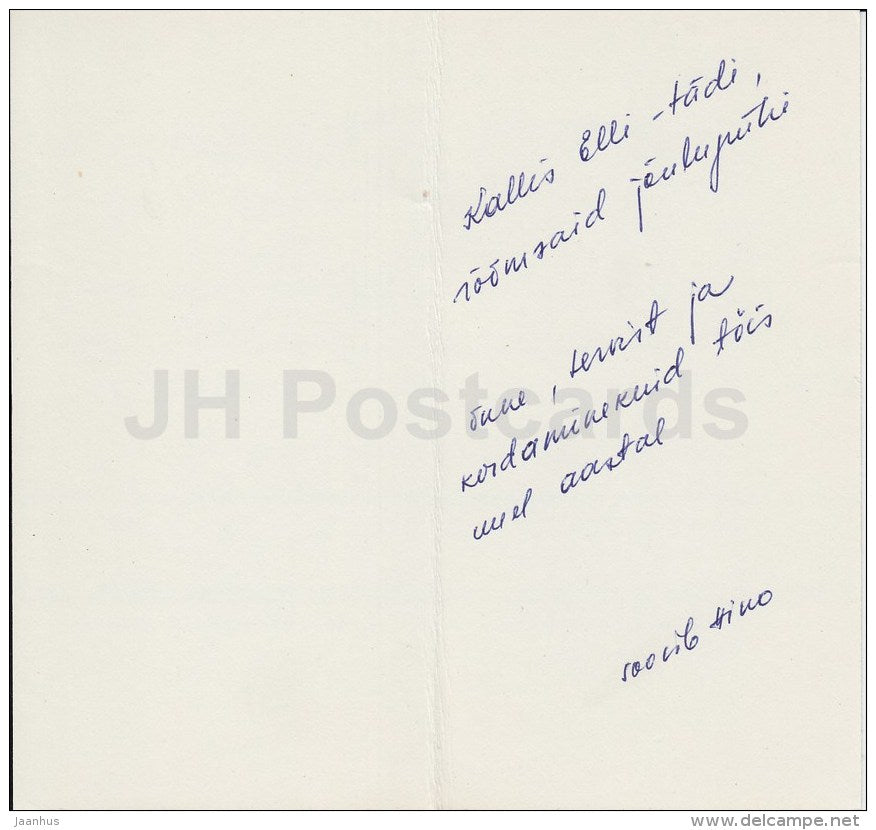 Kallis Elli-tädi,
rõõmsaid jõulupühi
õnne, tervist ja
kordaminekuid töös
uuel aastal
soovib Aino
JH Postcards
Jaanhus
www.delcampe.net